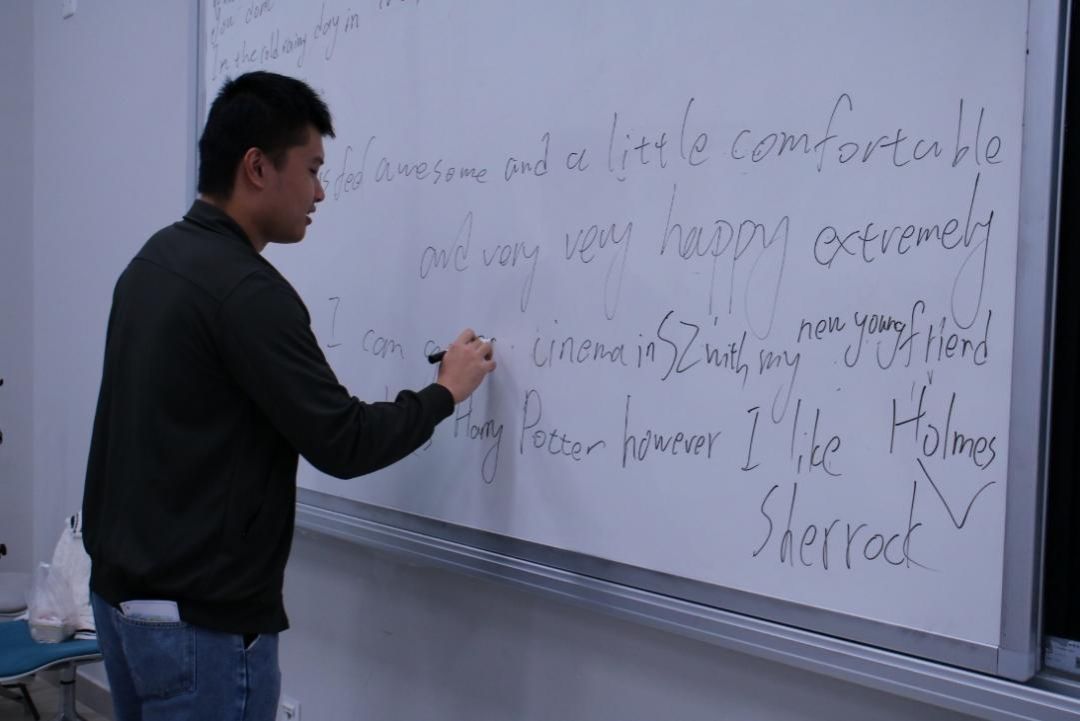 You don't
In the cold rainy day in
feel awesome and a little comfortable
and very very happy extremely
I can cinema in SZ with my new young friend
Harry Potter however I like Holmes
Sherrock